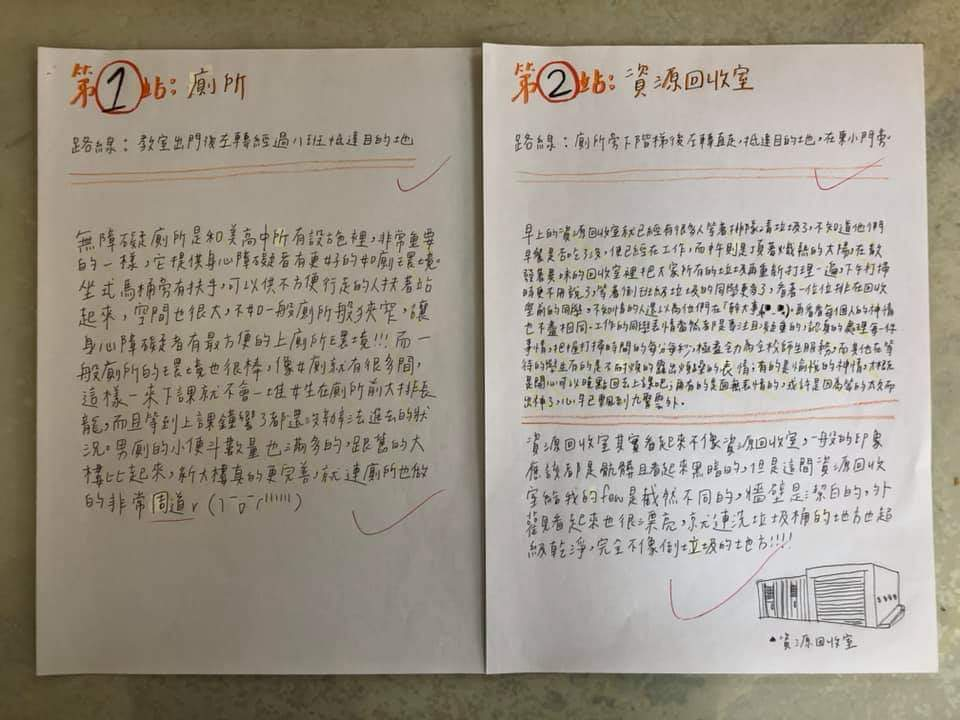 第1站:廁所
路線:教室出門後左轉經過八班抵達目的地
無障礙廁所是和美高中所有設施裡,非常重要
的一樣,它提供身心障礙者有更好的如廁環境。
坐式馬桶旁有扶手,可以供不方便行走的人扶著站
起來,空間也很大,不如一般廁所般狹窄,讓
身心障礙者有最方便的上廁所環境!!!而一
般廁所的環境也很棒,像女廁就有很多間,
這樣一來下課就不會一堆女生在廁所前大排長
龍,而且等到上課鐘響了都還沒辦法進去的狀
況。男廁的小便斗數量也滿多的,跟舊的大
樓比起來,新大樓真的更完善,就連廁所也做
的非常周道
第2站:資源回收室
路線:廁所旁下階梯後左轉直走,抵達目的地,在東小門旁。
早上的資源回收室就已經有很多人等著排隊清垃圾了,不知道他們
早餐是否吃了沒,但已經在工作,而中午則是頂著熾熱的大陽,在散
發異味的回收室裡把大家所有的垃圾再重新打理一遍,下午打掃
時更不用說了,等著倒班級垃圾的同學更多了,看著一位位排在回收
室前的同學,不知情的人還以為他們在「幹大事」,再看著每個人的神情
也不盡相同,工作的同學表情當然都是專注且凝重的,認真的處理每一件
事情,把握打掃時間的每分每秒,極盡全力為全校師生服務,而其他在等
待的學生有的是不耐煩的露出煩躁的表情;有的是愉悅的神情,大概
是開心可以晚點回去上課吧;再者的是面無表情的,或許是因為等的太久而
出神了,心早已飄到九霄雲外。
資源回收室其實看起來不像資源回收室,一般的印象
應該都是骯髒且看起來黑暗的,但是這間資源回收
室給我的feu是截然不同的,牆壁是潔白的,外
觀看起來也很漂亮,就連洗垃圾桶的地方也超
級乾淨,完全不像倒垃圾的地方!!!!
▲資源回收室